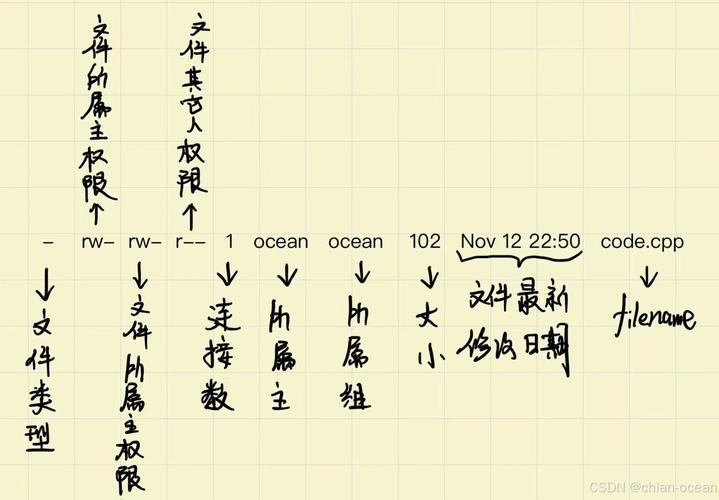 文件所属主权限
文件其它人权限
- rw- rw- r-- 1 ocean ocean 102 Nov 12 22:50 code.cpp
文件类型
文件所属主权限
连接数
所属主
所属组
大小
文件最新
修改日期
filename
CSDN @chian-ocean